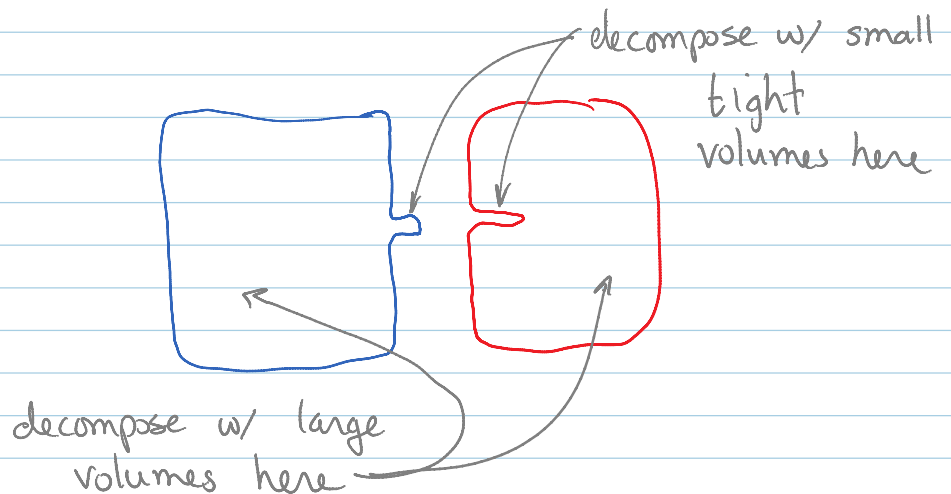 decompose w/ small
tight
volumes here
decompose w/ large
volumes here